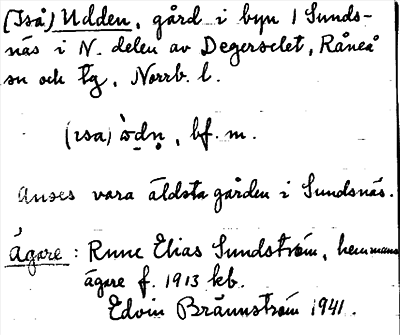 (Iså) Udden, gård i byn 1 Sunds-
näs i N. delen av Degerselet, Råneå
sn och tg, Norrb. l.
(ısa) ò̤dn̥, bf. m.
Anses vara äldsta gården i Sundsnäs.
Ägare: Rune Elias Sundström, hemmans
ägare f. 1913 kb.
Edvin Brännström 1941.